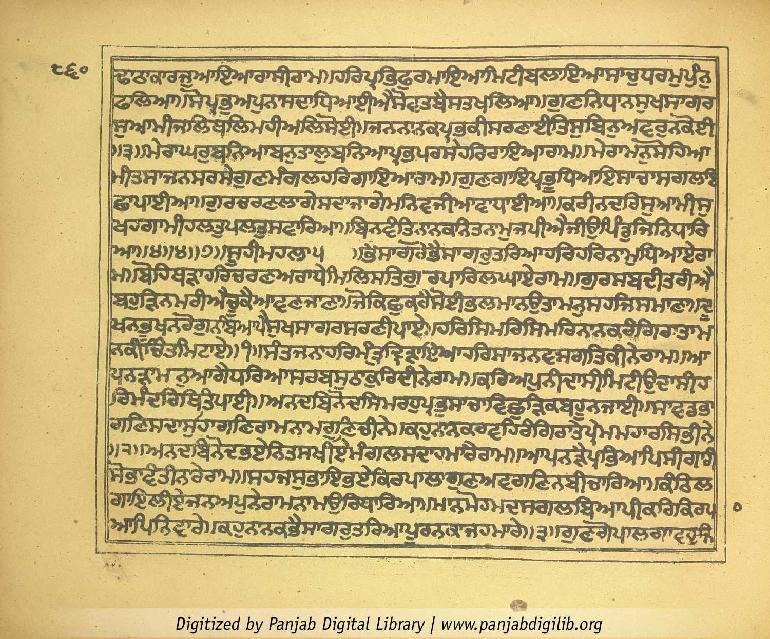 ੮੬੦
ਛਠਾਕਾਰਜੁਆਇਆਰਾਸੀਰਾਮ॥ਹਰਿਪ੍ਰਭਿਫੁਰਮਾਇਆਮਿਟੀਬਲਾਇਆਸਾਚੁਧਰਮੁਪੁੰਨੁ
ਫਲਿਆ॥ਸੋਪ੍ਰਭੁਅਪੁਨਾਸਦਾਧਿਆਈਐਸੋਵਤਬੈਸਤਖਲਿਆ॥ਗੁਣਨਿਧਾਨਸੁਖਸਾਗਰ
ਸੁਆਮੀਜਲਿਥਲਿਮਹੀਅਲਿਸੋਈ॥ਜਨਨਾਨਕਪ੍ਰਭਕੀਸਰਣਾਈਤਿਸੁਬਿਨੁਅਵਰੁਨਕੋਈ
॥੩॥ਮੇਰਾਘਰੁਬਨਿਆਬਨੁਤਾਲੁਬਨਿਆਪ੍ਰਭਪਰਸੇਹਰਿਰਾਇਆਰਾਮ॥ਮੇਰਾਮਨੁਸੋਹਿਆ
ਮੀਤਸਾਜਨਸਰਸੇਗੁਣਮੰਗਲਹਰਿਗਾਇਆਰਾਮ॥ਗੁਣਗਾਇਪ੍ਰਭੂਧਿਆਇਸਾਚਾਸਗਲਇ
ਛਪਾਈਆ॥ਗੁਰਚਰਣਲਾਗੇਸਦਾਜਾਗੇਮਨਿਵਜੀਆਵਾਧਾਈਆ॥ਕਰੀਨਦਰਿਸੁਆਮੀਸੁ
ਖਹਗਾਮੀਹਲਤੁਪਲਤੁਸਵਾਰਿਆ॥ਬਿਨਵੰਤਿਨਾਨਕਨਿਤਨਾਮੁਜਪੀਐਜੀਉਪਿੰਡੁਜਿਨਿਧਾਰਿ
ਆ॥੪॥੪॥੭॥ਸੂਹੀਮਹਲਾ੫ ॥ਭੈਸਾਗਰੋਭੈਸਾਗਰੁਤਰਿਆਹਰਿਹਰਿਨਾਮੁਧਿਆਏਰਾ
ਮ॥ਬੋਹਿਥੜਾਹਰਿਚਰਣਅਰਾਧੇਮਿਲਿਸਤਿਗੁਰਪਾਰਿਲਘਾਏਰਾਮ॥ਗੁਰਸਬਦੀਤਰੀਐ
ਬਹੁੜਿਨਮਰੀਐਚੂਕੈਆਵਣਜਾਣਾ॥ਜੋਕਿਛੁਕਰੈਸੋਈਭਲਮਾਨਉਤਾਮਨੁਸਹਜਿਸਮਾਣਾ॥ਦੂ
ਖਨਭੂਖਨਰੋਗੁਨਬਿਆਪੈਸੁਖਸਾਗਰਸਰਣੀਪਾਏ॥ਹਰਿਸਿਮਰਿਸਿਮਰਿਨਾਨਕਰੰਗਿਰਾਤਾਮ
ਨਕੀਚਿੰਤਮਿਟਾਏ॥੧॥ਸੰਤਜਨਾਹਰਿਮੰਤ੍ਰੁਦ੍ਰਿੜਾਇਆਹਰਿਸਾਜਨਵਸਗਤਿਕੀਨੇਰਾਮ॥ਆ
ਪਨੜਾਮਨੁਆਗੈਧਰਿਆਸਰਬਸੁਠਾਕੁਰਿਦੀਨੇਰਾਮ॥ਕਰਿਅਪੁਨੀਦਾਸੀਮਿਟੀਉਦਾਸੀਹ
ਰਿਮੰਦਰਿਥਿਤਿਪਾਈ॥ਅਨਦਬਿਨੋਦਸਿਮਰਹੁਪ੍ਰਭੁਸਾਚਾਵਿਛੁੜਿਕਬਹੂਨਜਾਈ॥ਸਾਵਡਭਾ
ਗਣਿਸਦਾਸੋਹਾਗਣਿਰਾਮਨਾਮਗੁਣਚੀਨੇ॥ਕਹੁਨਾਨਕਰਵਹਿਰੰਗਿਰਾਤੇਪ੍ਰੇਮਮਹਾਰਸਿਭੀਨੇ
॥੨॥ਅਨਦਬਿਨੋਦਭਏਨਿਤਸਖੀਏਮੰਗਲਸਦਾਹਮਾਰੈਰਾਮ॥ਆਪਨੜੈਪ੍ਰਭਿਆਪਿਸੀਗਾਰੀ
ਸੋਭਾਵੰਤੀਨਾਰੇਰਾਮ॥ਸਹਜਸੁਭਾਇਭਏਕਿਰਪਾਲਾਗੁਣਅਵਗਣਨਬੀਚਾਰਿਆ॥ਕੰਠਿਲ
ਗਾਇਲੀਏਜਨਅਪੁਨੇਰਾਮਨਾਮਉਰਿਧਾਰਿਆ॥ਮਾਨਮੋਹਮਦਸਗਲਬਿਆਪੀਕਰਿਕਿਰਪਾ
ਆਪਿਨਿਵਾਰੇ॥ਕਹੁਨਾਨਕਭੈਸਾਗਰੁਤਰਿਆਪੂਰਨਕਾਜਹਮਾਰੇ॥੩॥ਗੁਣਗੋਪਾਲਗਾਵਹੁਨਿ
Digitized by Panjab Digital Library | www.panjabdigilib.org